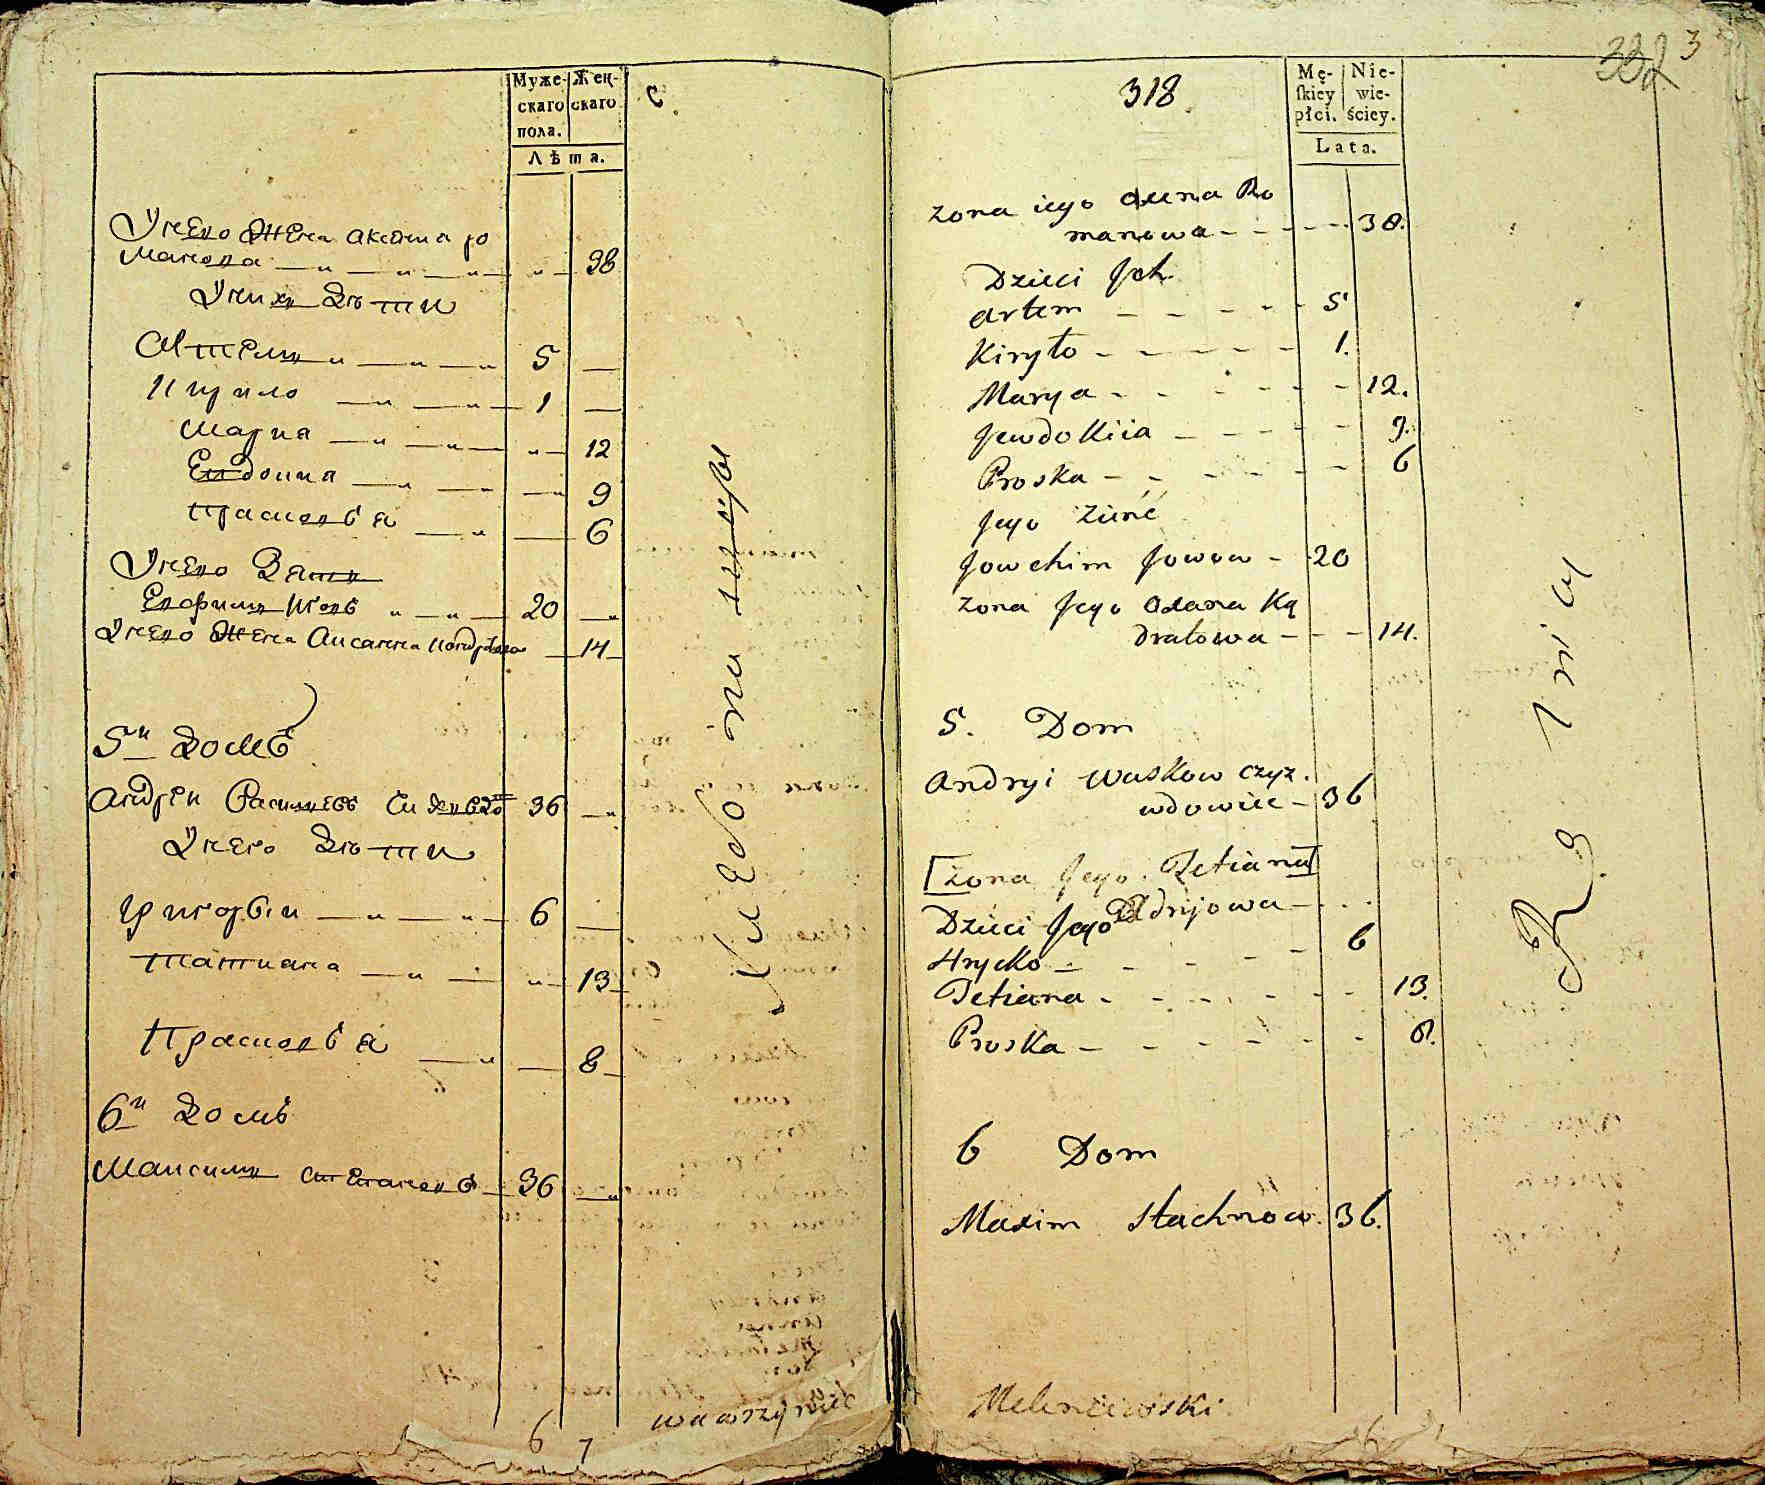 Муже- Жен-
скаго скаго
пола.
Лѣта.
с
Унево Жена Аксѣниа Ро
манова 38
Унихъ Дѣти
Артемъ 5
Кирило 1
Мариа 12
Евдокиа 9
Прасковья 6
Унево Зять
Ефимъ Іовъ 20
Унево Жена Аксанна Кондратова 14
5й Домъ
Андрей Василевъ 36
Унево Дѣти
Григорей 6
Татиана 13
Прасковья 8
6й Домъ
Максимъ Степановъ 36
6 7
wawrzyniec
318
332 3
Mę- Nie-
skiey wie-
płci. ściey.
Lata.
Zona iego Ro
manowa 38.
Dzieci Jch
Artem 5
Kiryło 1.
Marya 12.
Jewdokiia 9.
Proska 6
Jego Zięć
Jowchim Jowow 20
Zona Jego Oxana Ką
dratowa 14.
5. Dom
Andryi Waskow czyz.
wdowiec 36
Zona Jego Tetiana
Dzieci Jego
Hrycko 6
Tetiana 13.
Proska 8.
6 Dom
Maxim Stachnow. 36.